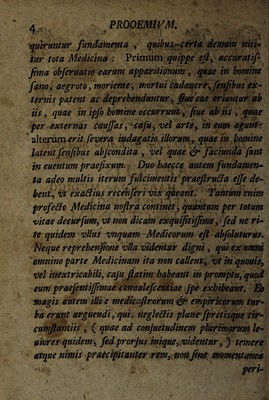 4 PROOEMIVM.
quiruntur fundamenta , quibus certa demum niti-
tur tota Medicina : Primum quippe est, accuratis-
sima obseruatio earum apparitionum , quae in homine
sano, aegroto, moriente, mortui cadauere, sensibus ex-
ternis patent ac deprehenduntur, siue eae oriantur ab
iis , quae in ipso homine occurrunt , siue ab iis , quae
per externas caussas, casu, vel arte, in eum agunt:
alterum erit seuera indagatio illorum, quae in homine
latent sensibus abscondita , vel quae & facienda sunt
in euentum praefixum. Duo haecce autem fundamen-
ta adeo multis iterum fulcimentis praestructa esse de-
bent, vt exactius recenseri vix queant. Tantum enim
profecto Medicina nostra continet , quantum per totum
vitae decursum, vt non dicam exquisitissime , sed ne ri-
te quidem vllus vnquam Medicorum est absoluturus.
Neque reprehensione vlla videntur digni , qui ex omni
omnino parte Medicinam ita non callent, vt in quouis,
vel inextricabili, casu statim habeant in promptu, quod
eum praesentissimae conualescentiae spe exhibeant. Eo
magis autem illi e medicastrorum & empiricorum tur-
ba erunt arguendi, qui, neglectis plane spretisque cir-
cumstantiis , ( quae ad consuetudinem plurimorum le-
uiores quidem, sed prorsus inique, videntur, ) temere
atque nimis praecipitanter rem, non sine momentanea
peri-